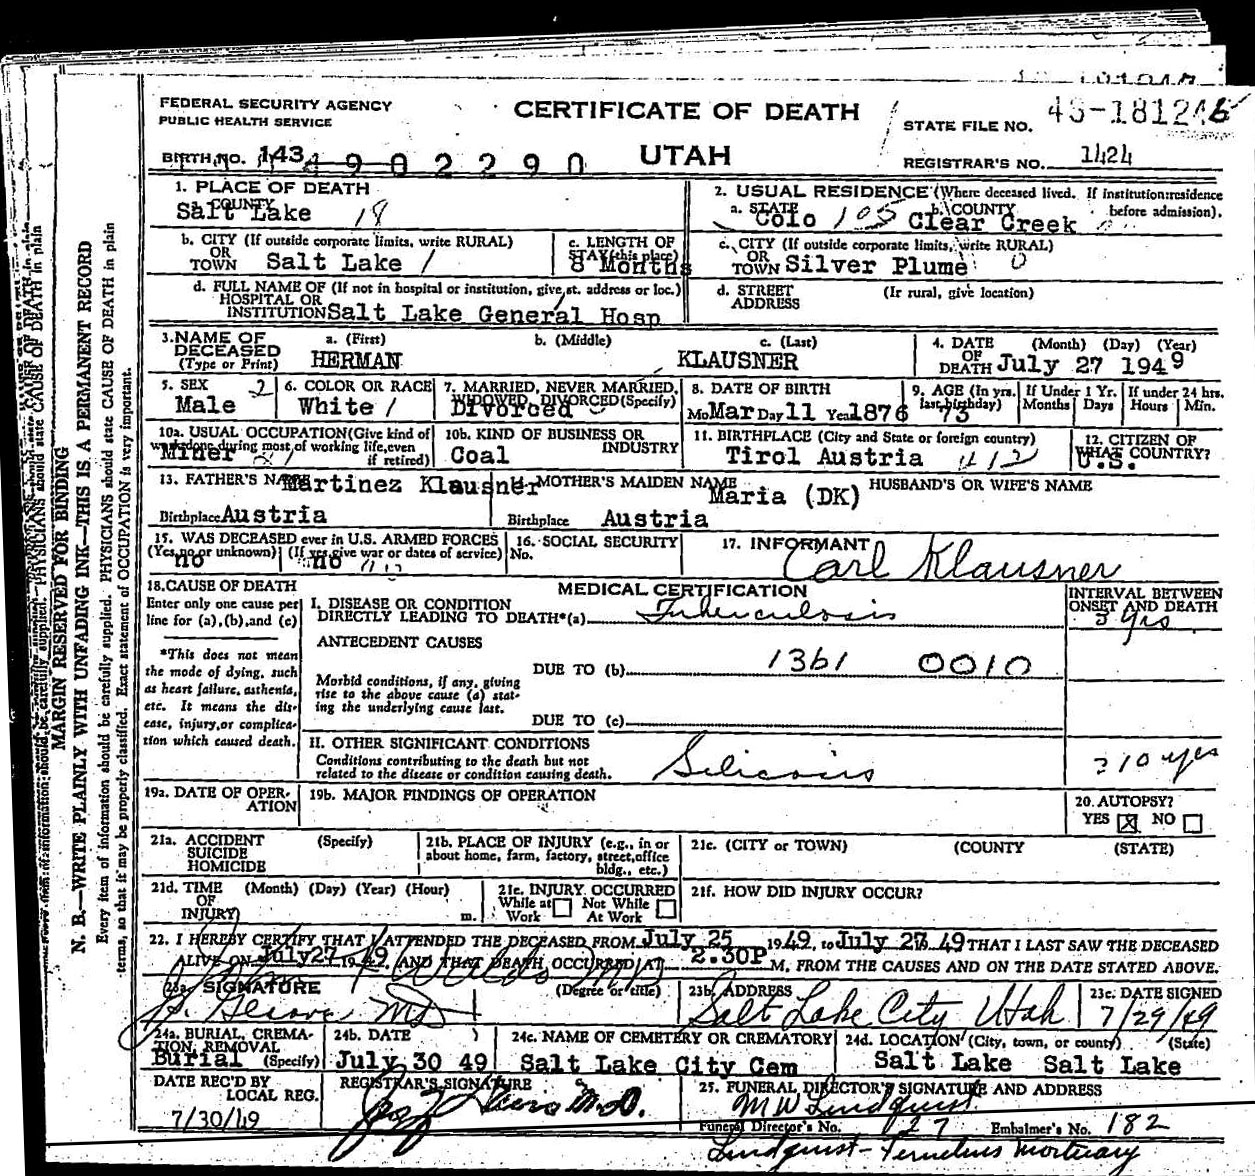 FEDERAL SECURITY AGENCY
PUBLIC HEALTH SERVICE
CERTIFICATE OF DEATH
STATE FILE NO.
BIRTH NO. 143 4902290
UTAH
REGISTRAR'S NO. 1424
1. PLACE OF DEATH
a. COUNTY
Salt Lake 18
2. USUAL RESIDENCE (Where deceased lived. If institution:residence before admission).
a. STATE Colo 105 b. COUNTY Clear Creek
b. CITY (If outside corporate limits, write RURAL)
OR
TOWN Salt Lake 1
c. LENGTH OF
STAY (this place)
8 Months
c. CITY (If outside corporate limits, write RURAL)
OR
TOWN Silver Plume 0
d. FULL NAME OF (If not in hospital or institution, give st. address or loc.)
HOSPITAL OR
INSTITUTION Salt Lake General Hosp
d. STREET
ADDRESS
(Ir rural, give location)
3. NAME OF
DECEASED
(Type or Print)
a. (First)
HERMAN
b. (Middle)
c. (Last)
KLAUSNER
4. DATE
OF
DEATH
(Month) (Day) (Year)
July 27 1949
5. SEX 2
Male
6. COLOR OR RACE
White 1
7. MARRIED, NEVER MARRIED,
WIDOWED, DIVORCED (Specify)
Divorced
8. DATE OF BIRTH
Mo Mar Day 11 Year 1876
9. AGE (In yrs.
last birthday)
73
If Under 1 Yr.
Months Days
If under 24 hrs.
Hours Min.
10a. USUAL OCCUPATION (Give kind of
work done during most of working life, even
if retired)
Miner
10b. KIND OF BUSINESS OR
INDUSTRY
Coal
11. BIRTHPLACE (City and State or foreign country)
Tirol Austria
12. CITIZEN OF
WHAT COUNTRY?
U.S.
13. FATHER'S NAME
Martinez Klausner
Birthplace Austria
14. MOTHER'S MAIDEN NAME
Maria (DK)
Birthplace Austria
HUSBAND'S OR WIFE'S NAME
15. WAS DECEASED ever in U.S. ARMED FORCES
(Yes, no or unknown) (If yes, give war or dates of service)
no no
16. SOCIAL SECURITY
No.
17. INFORMANT
Carl Klausner
18. CAUSE OF DEATH
Enter only one cause per
line for (a), (b), and (c)
*This does not mean
the mode of dying, such
as heart failure, asthenia,
etc. It means the dis-
ease, injury, or complica-
tion which caused death.
MEDICAL CERTIFICATION
I. DISEASE OR CONDITION
DIRECTLY LEADING TO DEATH*(a) Tuberculosis
INTERVAL BETWEEN
ONSET AND DEATH
yrs
ANTECEDENT CAUSES
DUE TO (b) 0010
Morbid conditions, if any, giving
rise to the above cause (a) stat-
ing the underlying cause last.
DUE TO (c)
II. OTHER SIGNIFICANT CONDITIONS
Conditions contributing to the death but not
related to the disease or condition causing death.
Silicosis
10 yrs
19a. DATE OF OPER-
ATION
19b. MAJOR FINDINGS OF OPERATION
20. AUTOPSY?
YES X NO
21a. ACCIDENT
SUICIDE
HOMICIDE
(Specify)
21b. PLACE OF INJURY (e.g., in or
about home, farm, factory, street, office
bldg., etc.)
21c. (CITY or TOWN) (COUNTY (STATE)
21d. TIME
OF
INJURY
(Month) (Day) (Year) (Hour)
m.
21e. INJURY OCCURRED
While at Work
Not While At Work
21f. HOW DID INJURY OCCUR?
22. I HEREBY CERTIFY THAT I ATTENDED THE DECEASED FROM July 25 1949, to July 27 49 THAT I LAST SAW THE DECEASED
ALIVE ON July 27 1949 AND THAT DEATH OCCURRED AT 2.30P M, FROM THE CAUSES AND ON THE DATE STATED ABOVE.
23a. SIGNATURE
(Degree or title)
MD
23b. ADDRESS
Salt Lake City Utah
23c. DATE SIGNED
7/29/49
24a. BURIAL, CREMA-
TION, REMOVAL
Burial (Specify)
24b. DATE
July 30 49
24c. NAME OF CEMETERY OR CREMATORY
Salt Lake City Cem
24d. LOCATION (City, town, or county) (State)
Salt Lake Salt Lake
DATE REC'D BY
LOCAL REG.
7/30/49
REGISTRAR'S SIGNATURE
M.D.
25. FUNERAL DIRECTOR'S SIGNATURE AND ADDRESS
M W Lindquist
Funeral Director's No. 127 Embalmer's No. 182
Mortuary
MARGIN RESERVED FOR BINDING
N. B.—WRITE PLAINLY WITH UNFADING INK—THIS IS A PERMANENT RECORD
Every item of information should be carefully supplied. PHYSICIANS should state CAUSE OF DEATH in plain
terms, so that it may be properly classified. Exact statement of OCCUPATION is very important.